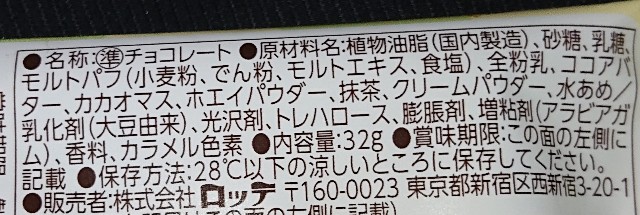 ●名称:㊜チョコレート ●原材料名:植物油脂(国内製造)、砂糖、乳糖、
モルトパフ(小麦粉、でん粉、モルトエキス、食塩)、全粉乳、ココアバ
ター、カカオマス、ホエイパウダー、抹茶、クリームパウダー、水あめ/
乳化剤(大豆由来)、光沢剤、トレハロース、膨脹剤、増粘剤(アラビアガ
ム)、香料、カラメル色素 ●内容量:32g ●賞味期限:この面の左側に
記載 ●保存方法:28℃以下の涼しいところに保存してください。
●販売者:株式会社 ロッテ 〒160-0023 東京都新宿区西新宿3-20-1
の左側に記載)